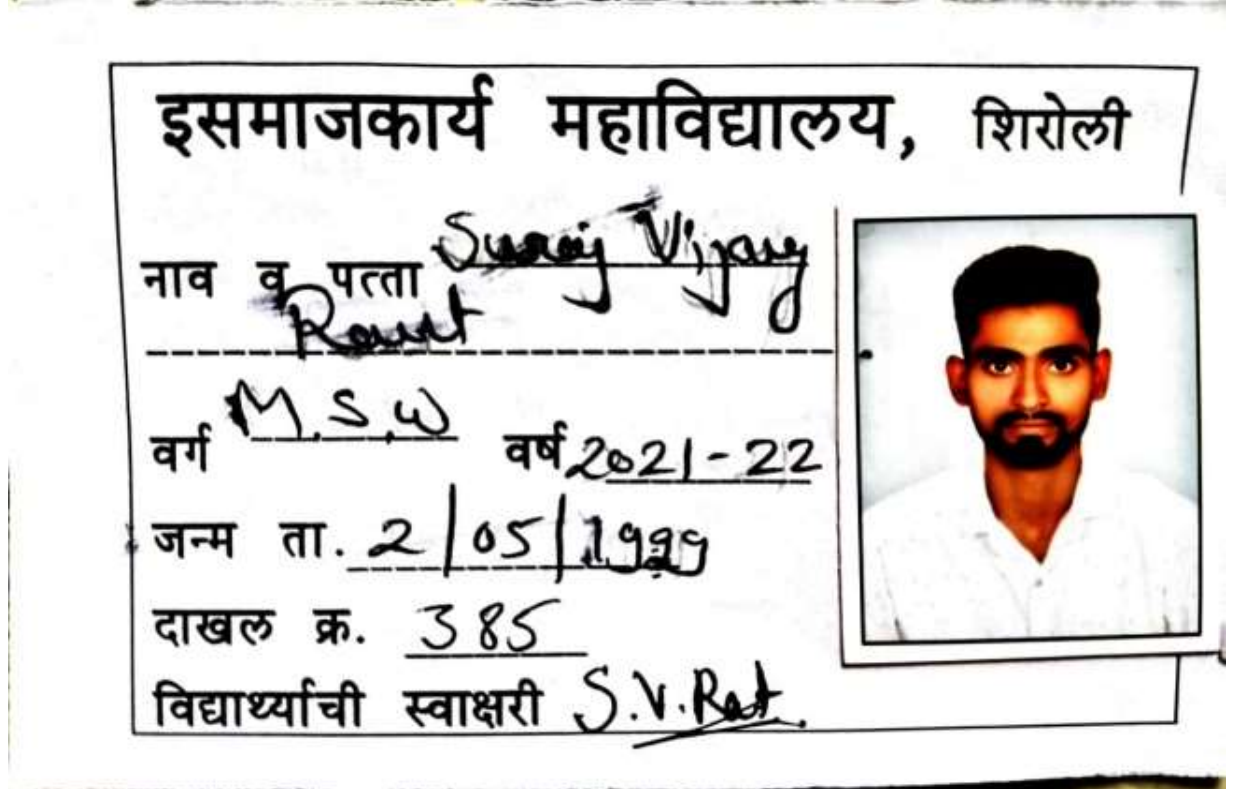 इसमाजकार्य महाविद्यालय, शिरोली
नाव व पत्ता Suraj Vijay
Raut
वर्ग M.S.W वर्ष 2021-22
जन्म ता. 2/05/1999
दाखल क्र. 385
विद्यार्थ्याची स्वाक्षरी S.V.Rat.